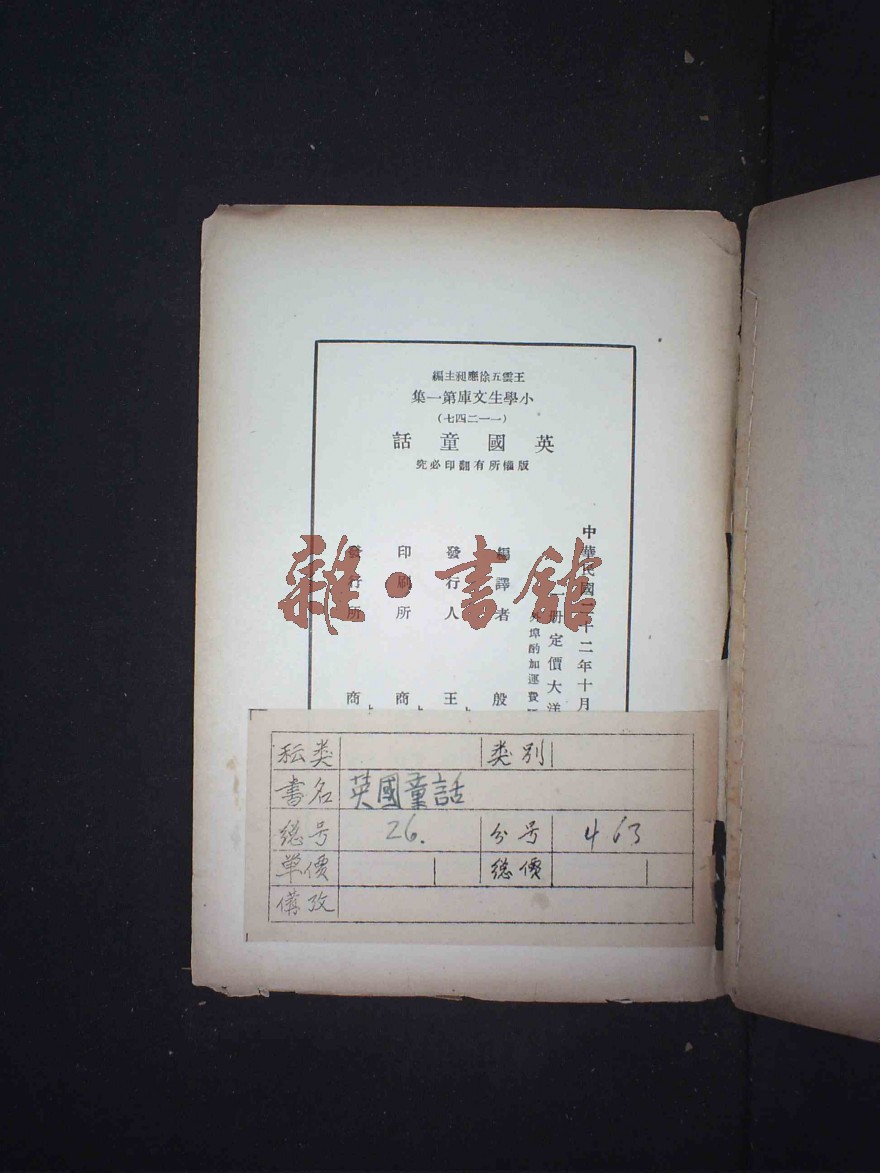 王雲五徐應昶主編
小學生文庫第一集
（一一二四七）
英國童話
版權所有翻印必究
中華民國二十二年十月
冊定價大洋
外埠酌加運費
編譯者 殷
發行人 王
印刷所 商
發行所 商
雜·書館
秐类 类别
書名 英國童話
總号 26. 分号 463
單價 總價
備攷